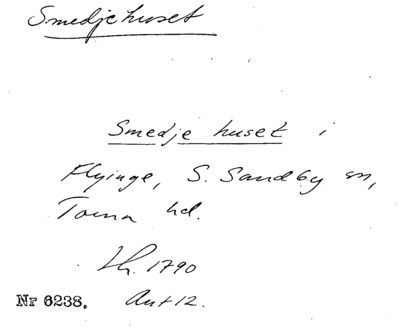 Smedjehuset
Smedje huset i
Flyinge, S. Sandby sn,
Torna hd.
Lh. 1790
Nr 6238. Ant 12.